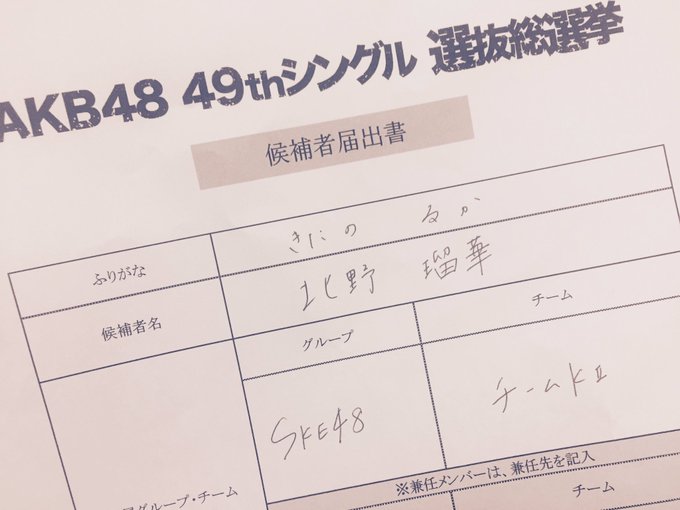 AKB48 49thシングル 選抜総選挙
候補者届出書
ふりがな きたの るか
候補者名 北野 瑠華
グループ チーム
SKE48 チームKⅡ
※兼任メンバーは、兼任先を記入
グループ・チーム
チーム